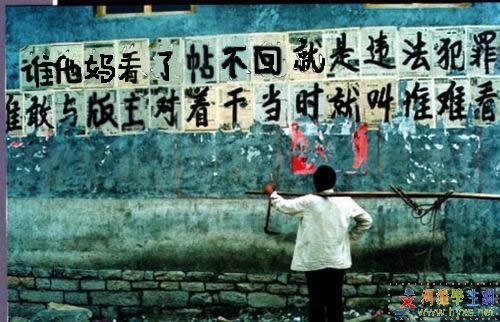 谁他妈看了帖不回就是违法犯罪
谁敢与版主对着干当时就叫谁难看
河源学生網
www.hyxs.net